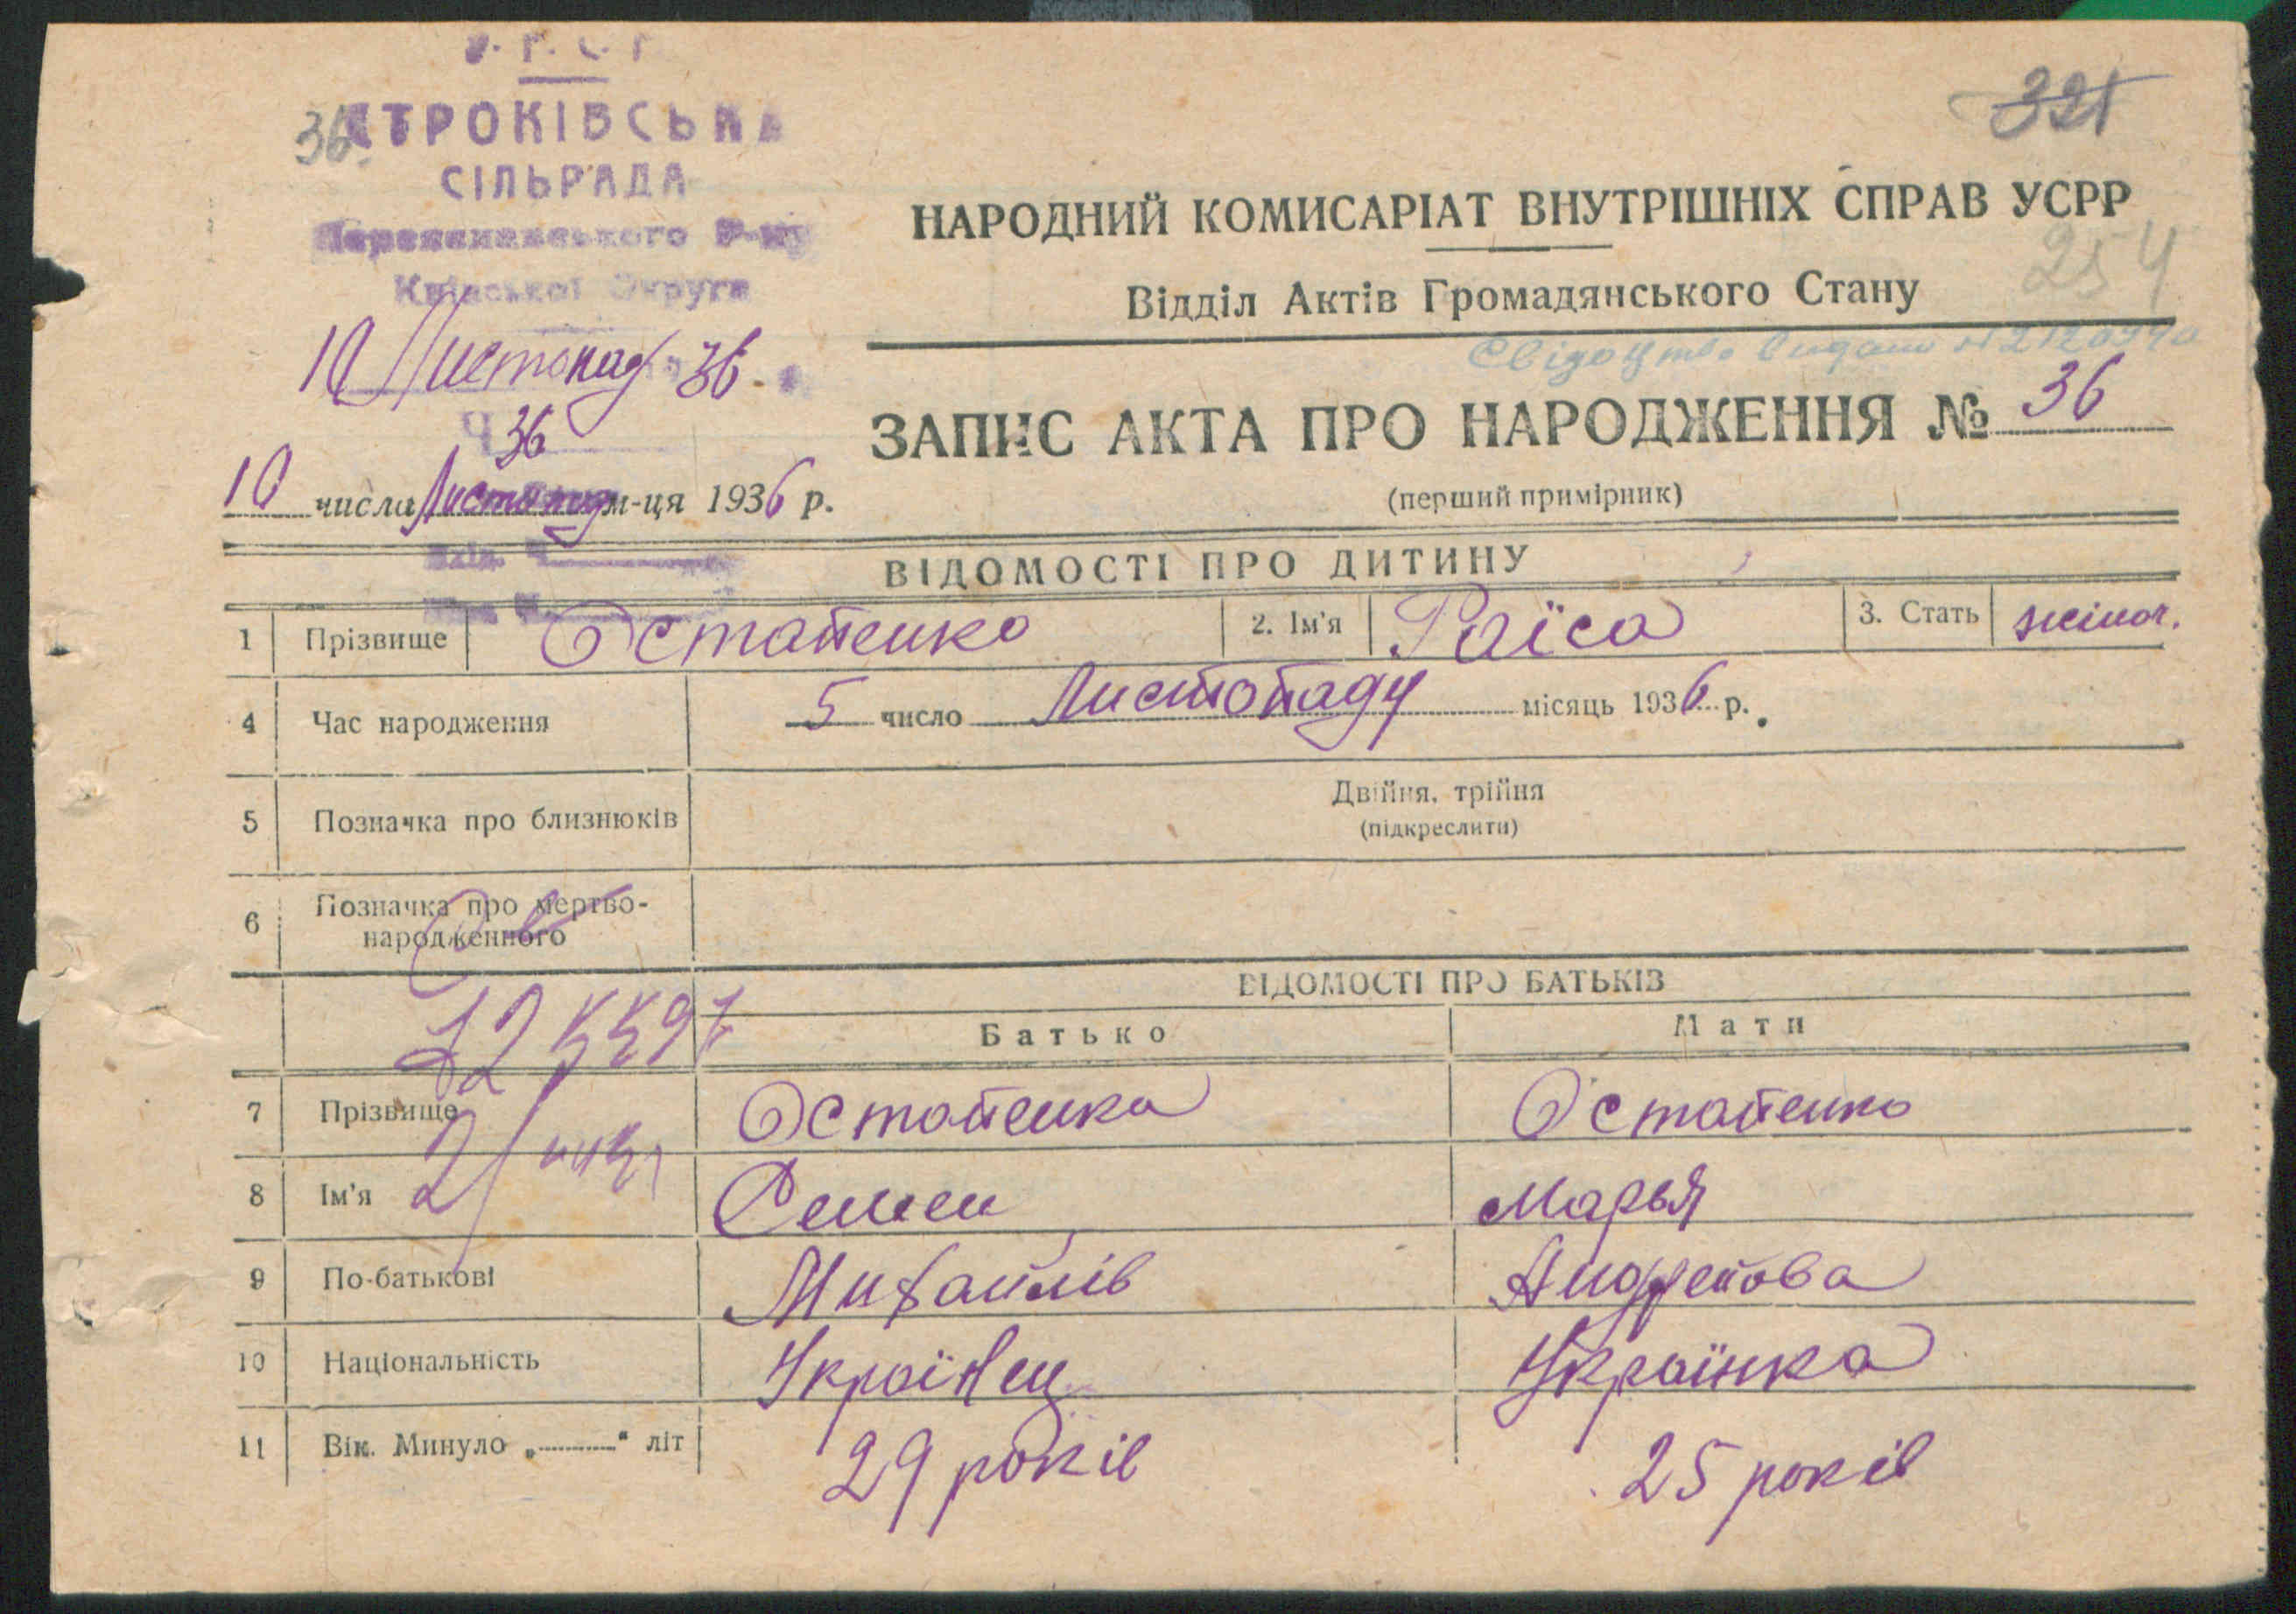 36. СТРОКІВСЬКА
СІЛЬРАДА
Р-ну
Київської Округи
10 Листопад 36.
Ч 36
321
НАРОДНИЙ КОМИСАРІАТ ВНУТРІШНІХ СПРАВ УСРР
254
Відділ Актів Громадянського Стану
Свідоцтво видано №
ЗАПИС АКТА ПРО НАРОДЖЕННЯ № 36
(перший примірник)
10 числа Листопад м-ця 1936 р.
ВІДОМОСТІ ПРО ДИТИНУ
1 Прізвище Остапенко 2. Ім'я Раїса 3. Стать жіноч.
4 Час народження 5 число Листопаду місяць 1936 р.
5 Позначка про близнюків Двійня, трійня
(підкреслити)
6 Позначка про мертво-
народженного
ВІДОМОСТІ ПРО БАТЬКІВ
Батько Мати
7 Прізвище Остапенка Остапенко
8 Ім'я Семен Марья
9 По-батькові Михайлів Андрейова
10 Національність Українец Українка
11 Вік. Минуло „ “ літ 29 років 25 років